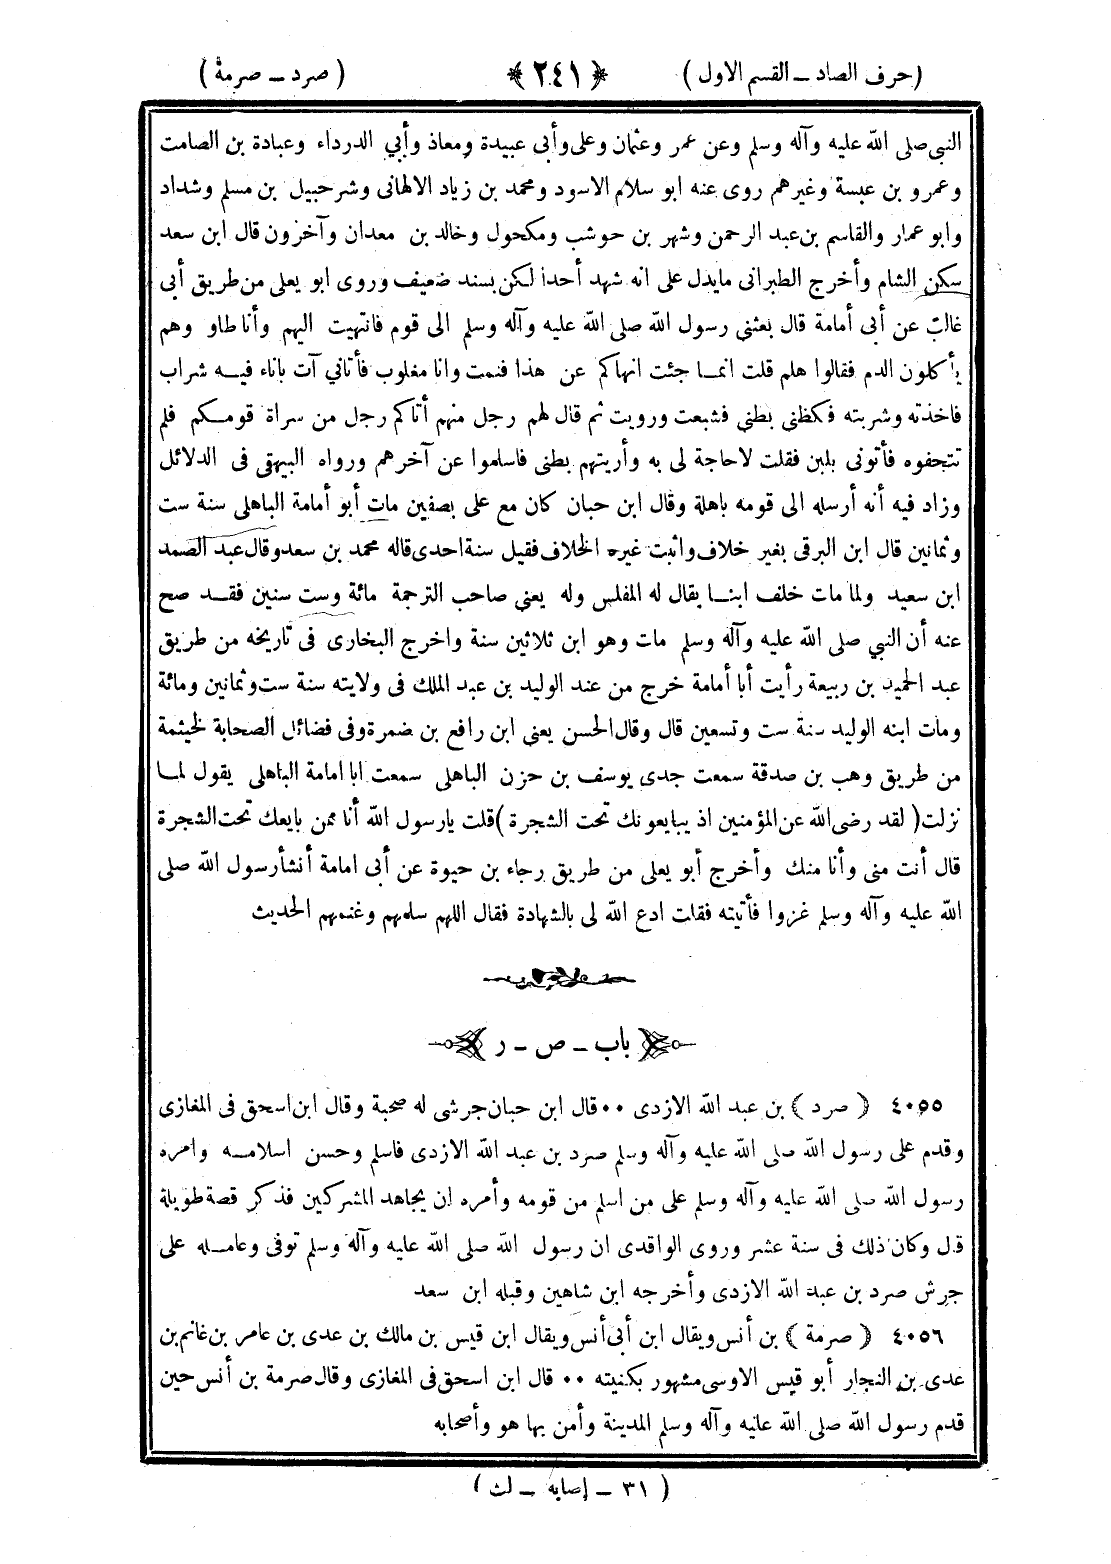 (حرف الصاد ــ القسم الاول) ﴿٢٤١﴾ (صرد ــ صرمة)
النبي صلى الله عليه وآله وسلم وعن عمر وعثمان وعلى وأبى عبيدة ومعاذ وأبي الدرداء وعبادة بن الصامت
وعمرو بن عبسة وغيرهم روى عنه ابو سلام الاسود ومحمد بن زياد الالهانى وشرحبيل بن مسلم وشداد
وابو عمار والقاسم بن عبد الرحمن وشهر بن حوشب ومكحول وخالد بن معدان وآخرون قال ابن سعد
سكن الشام وأخرج الطبرانى مايدل على انه شهد أحدا لكن بسند ضعيف وروى ابو يعلى من طريق أبى
غالب عن أبى أمامة قال بعثنى رسول الله صلى الله عليه وآله وسلم الى قوم فانتهيت اليهم وأنا طاو وهم
يأكلون الدم فقالوا هلم قلت انمــا جئت انهاكم عن هذا فنمت وانا مغلوب فأتاني آت باناء فيــه شراب
فاخذته وشربته فكظنى بطنى فشبعت ورويت ثم قال لهم رجل منهم أتاكم رجل من سراة قومــكم فلم
تتحفوه فأتونى بلبن فقلت لاحاجة لى به وأريتهم بطنى فاسلموا عن آخرهم ورواه البيهقى فى الدلائل
وزاد فيه أنه أرسله الى قومه باهلة وقال ابن حبان كان مع على بصفين مات أبو أمامة الباهلى سنة ست
وثمانين قال ابن البرقى بغير خلاف واثبت غيره الخلاف فقيل سنة احدى قاله محمد بن سعد وقال عبد الصمد
ابن سعيد ولما مات خلف ابنــا يقال له المفلس وله يعني صاحب الترجمة مائة وست سنين فقــد صح
عنه أن النبي صلى الله عليه وآله وسلم مات وهو ابن ثلاثين سنة واخرج البخارى فى تاريخه من طريق
عبد الحميد بن ربيعة رأيت أبا أمامة خرج من عند الوليد بن عبد الملك فى ولايته سنة ست وثمانين ومائة
ومات ابنه الوليد سنة ست وتسعين قال وقال الحسن يعنى ابن رافع بن ضمرة وفى فضائل الصحابة لخيثمة
من طريق وهب بن صدقة سمعت جدى يوسف بن حزن الباهلى سمعت ابا امامة الباهلى يقول لمــا
نزلت (لقد رضى الله عن المؤمنين اذ يبايعونك تحت الشجرة) قلت يارسول الله أنا ممن بايعك تحت الشجرة
قال أنت منى وأنا منك وأخرج أبو يعلى من طريق رجاء بن حيوة عن أبى امامة أنشأ رسول الله صلى
الله عليه وآله وسلم غزوا فأتيته فقلت ادع الله لى بالشهادة فقال اللهم سلمهم وغنمهم الحديث
باب ــ ص ــ ر
٤٠٥٥ (صرد) بن عبد الله الازدى ٠٠ قال ابن حبان جرشى له صحبة وقال ابن اسحق فى المغازى
وقدم على رسول الله صلى الله عليه وآله وسلم صرد بن عبد الله الازدى فاسلم وحسن اسلامــه وامره
رسول الله صلى الله عليه وآله وسلم على من اسلم من قومه وأمره ان يجاهد المشركين فذكر قصة طويلة
قال وكان ذلك فى سنة عشر وروى الواقدى ان رسول الله صلى الله عليه وآله وسلم توفى وعامــله على
جرش صرد بن عبد الله الازدى وأخرجه ابن شاهين وقبله ابن سعد
٤٠٥٦ (صرمة) بن أنس ويقال ابن أبى أنس ويقال ابن قيس بن مالك بن عدى بن عامر بن غانم بن
عدى بن النجار أبو قيس الاوسى مشهور بكنيته ٠٠ قال ابن اسحق فى المغازى وقال صرمة بن أنس حين
قدم رسول الله صلى الله عليه وآله وسلم المدينة وأمن بها هو وأصحابه
(٣١ ــ إصابه ــ لث)